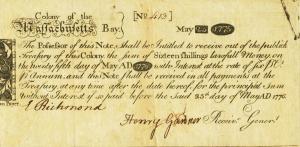 Colony of the [No 413]
Massachusetts Bay. May 25 1775
The Possessor of this Note, shall be Intitled to receive out of the publick
Treasury of this Colony, the sum of Sixteen shillings lawfull Money on
the twenty fifth day of May AD 1776 with Interest at the rate of six P Ct
P Annum, and this Note shall be received in all payments at the
Treasury at any time after the date hereof, for the principal Sum
Without Interest if so paid before the Said 25th day of May AD 1776.
Richmond
Henry Gardner Receivr. General